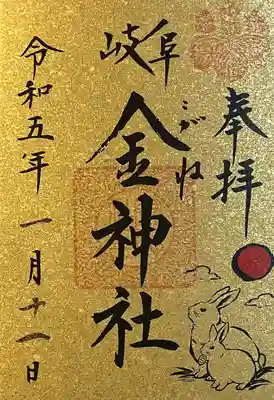 奉拝
岐阜
金神社
こがね
令和五年 一月十一日